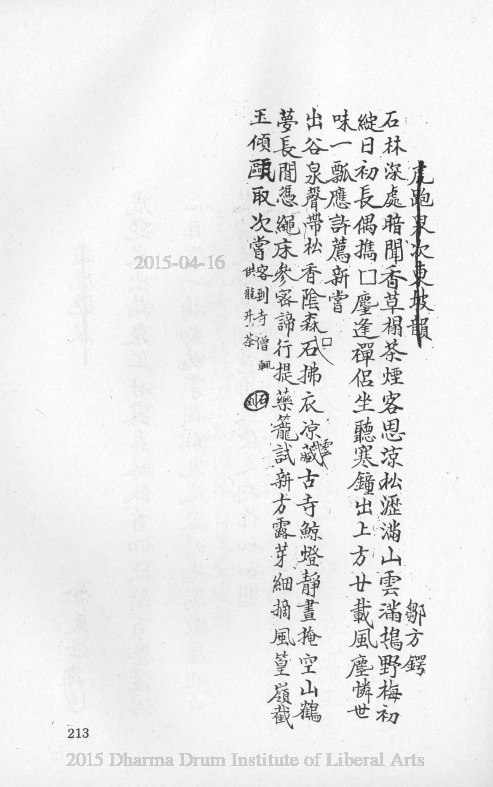 虎跑泉次東坡韻 鄒方鍔
石林深處暗聞香草榻茶煙客思涼松瀝滿山雲滿塢野梅初
綻日初長偶擕口麈逢禪侶坐聽寒鐘出上方廿載風塵憐世
味一瓢應許薦新嘗
出谷泉聲帶松香陰森石口拂衣凉雲藏古寺鯨燈靜晝掩空山鶴
夢長閒憑繩床參密諦行提藥籠試新方露芽細摘風篁嶺截
玉傾甌取次嘗客到寺僧輒
供龍井茶
石刻
2015-04-16
213
2015 Dharma Drum Institute of Liberal Arts